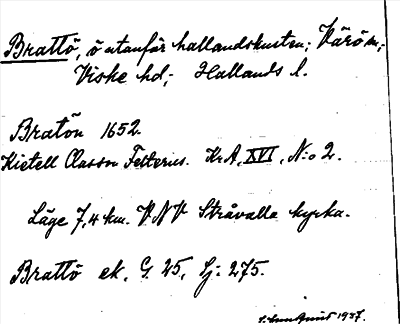 Brattö, ö utanför hallandskusten; Värö sn,
Viske hd; Hallands l.
Bratön 1652.
Kietell Classon Felterus. KrA, XVI, N:o 2.
Läge 7,4 km. VNV Stråvalla kyrka.
Brattö ek. G. 25, Lj: 275.
1937.